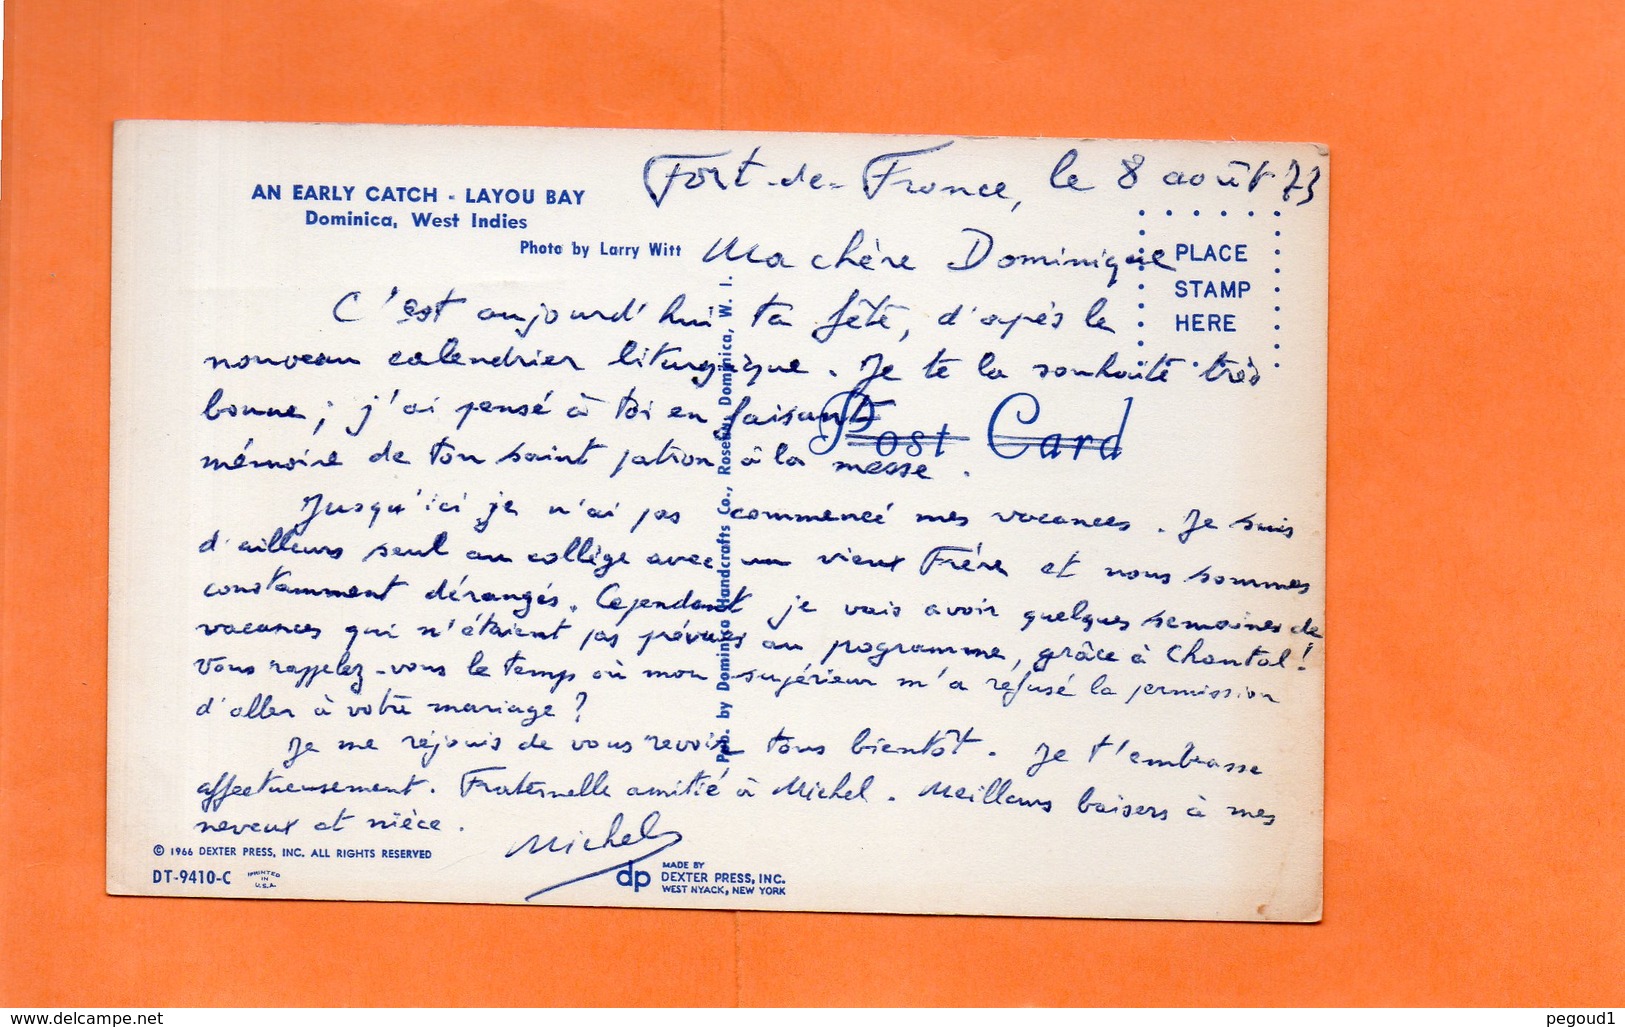 AN EARLY CATCH - LAYOU BAY
Dominica, West Indies
Photo by Larry Witt
Fort-de-France, le 8 août 73
Ma chère Dominique
PLACE
STAMP
HERE
C'est aujourd'hui ta fête, d'après le
nouveau calendrier liturgique. Je te la souhaite très
bonne ; j'ai pensé à toi en faisant
mémoire de ton saint patron à la messe.
Post Card
Jusqu'ici je n'ai pas commencé mes vacances. Je suis
d'ailleurs seul au collège avec un vieux Frère et nous sommes
constamment dérangés. Cependant je vais avoir quelques semaines de
vacances qui n'étaient pas prévues au programme, grâce à Chantal !
Vous rappelez-vous le temps où mon supérieur m'a refusé la permission
d'aller à votre mariage ?
Je me réjouis de vous revoir tous bientôt. Je t'embrasse
affectueusement. Fraternelle amitié à Michel. Meilleurs baisers à mes
neveux et nièce.
Michel
Pub. by Dominica Handcrafts Co., Roseau, Dominica, W. I.
© 1966 DEXTER PRESS, INC. ALL RIGHTS RESERVED
DT-9410-C
PRINTED
IN
U.S.A.
dp
MADE BY
DEXTER PRESS, INC.
WEST NYACK, NEW YORK
www.delcampe.net
pegoud1